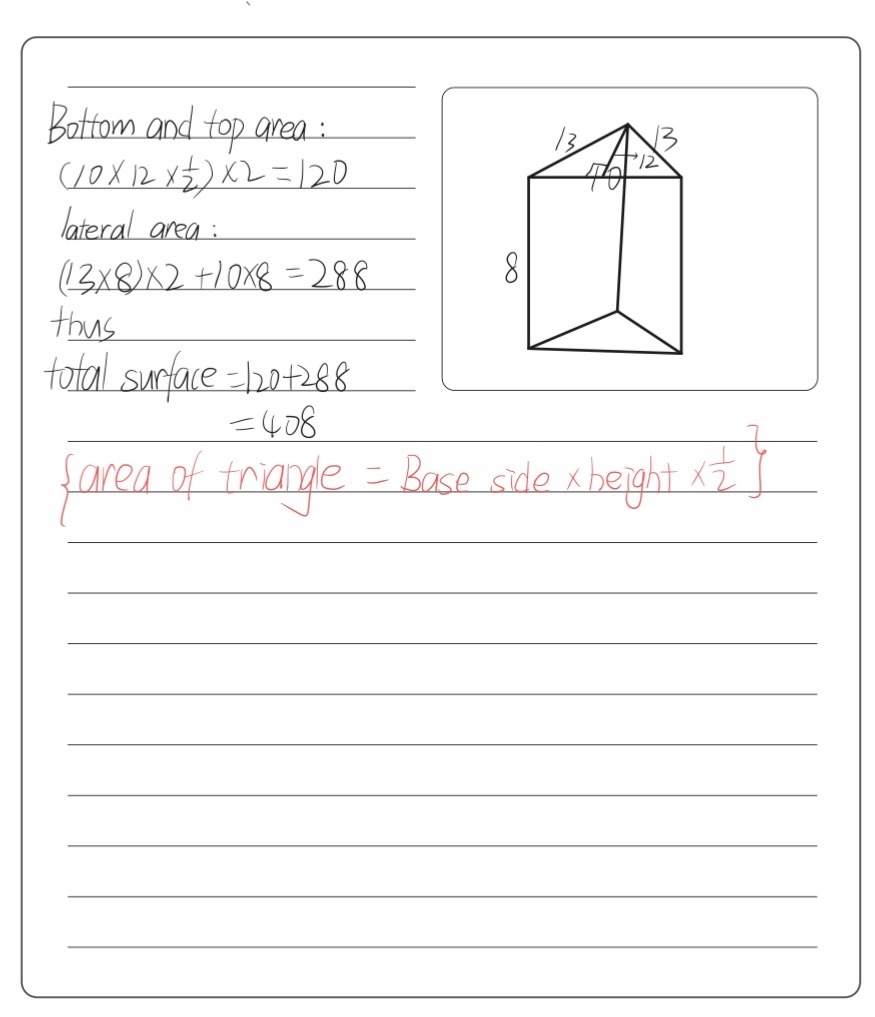 Bottom and top area:
(10×12×1/2)×2=120
lateral area:
(13×8)×2+10×8=288
thus
total surface=120+288
=408
{area of triangle = Base side × height × 1/2}
13
13
12
10
8